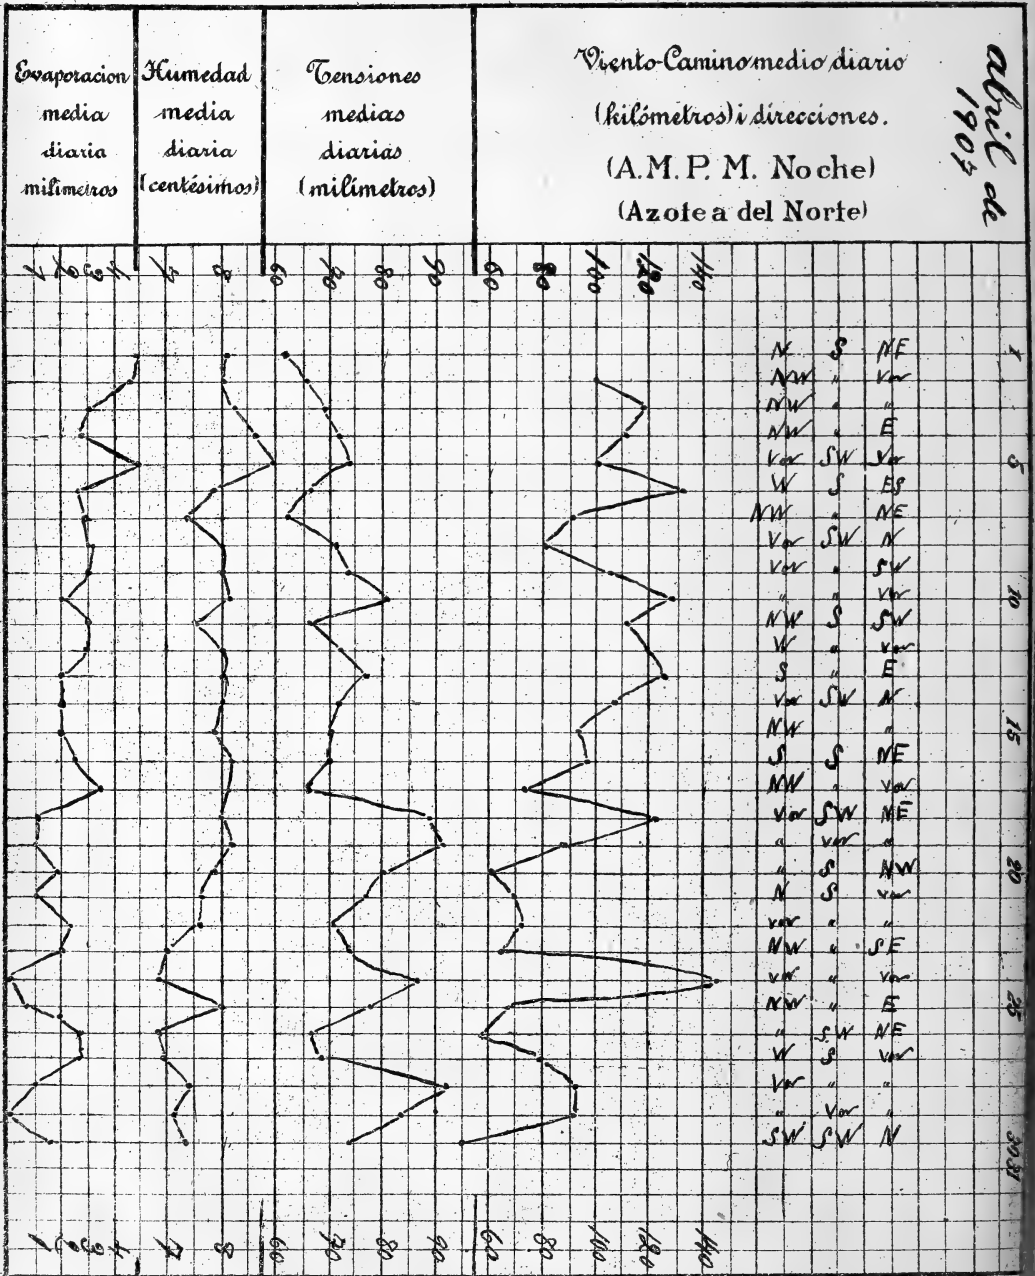 Evaporacion
media
diaria
milimetros
Humedad
media
diaria
(centésimos)
Tensiones
medias
diarias
(milímetros)
Viento-Camino medio diario
(kilómetros) i direcciones.
(A. M. P. M. Noche)
(Azotea del Norte)
abril de
1907
1 2 3 4 7 8 60 70 80 90 60 80 100 120 140
N S NE 1
NW " Var
NW " "
NW " E
Var SW Var 5
W S ES
NW " NE
Var SW N
Var " SW
" " Var 10
NW S SW
W " var
S " E
Var SW N
NW " " 15
S S NE
NW " Var
Var SW NE
" var "
" S NW 20
N S var
var " "
NW " SE
var " var
NW " E 25
" SW NE
W S var
Var " "
" Var "
SW SW N 30 31
1 2 3 4 7 8 60 70 80 90 60 80 100 120 140